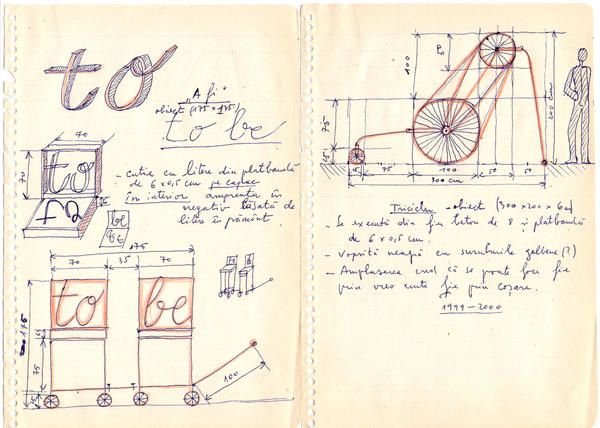 to
„A fi"
obiect (175 × 175)
to be
70
70
to
be
- cutie cu litere din platbandă
de 6 x 0,5 cm pe capac
în interior amprenta în
negativ lăsată de
litere în pământ
175
70 35 70
to be
175
75
100
100
75
25
200 cm
75 100 50 50
300 cm
- obiect (300 x 200 x 60)
- Se execută din fier beton de 8 și platbandă
de 6 x 0,5 cm.
- Vopsită neagră cu șuruburile galbene (?)
- Amplasarea cred că se poate face fie
prin vreo curte fie prin
1999-2000